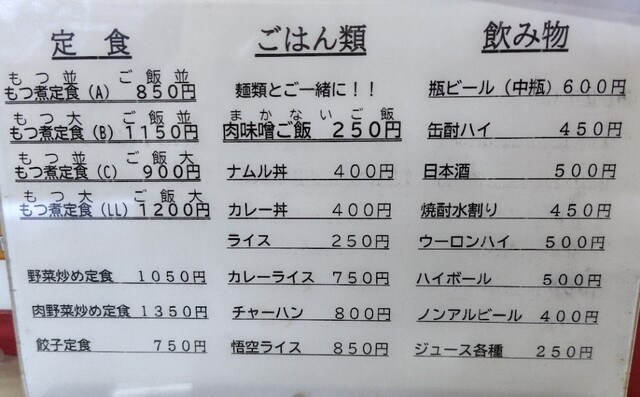 定食
もつ並 ご飯並
もつ煮定食(A) 850円
もつ大 ご飯並
もつ煮定食(B) 1150円
もつ並 ご飯大
もつ煮定食(C) 900円
もつ大 ご飯大
もつ煮定食(LL) 1200円
野菜炒め定食 1050円
肉野菜炒め定食 1350円
餃子定食 750円
ごはん類
麺類とご一緒に!!
まかないご飯
肉味噌ご飯 250円
ナムル丼 400円
カレー丼 400円
ライス 250円
カレーライス 750円
チャーハン 800円
悟空ライス 850円
飲み物
瓶ビール(中瓶) 600円
缶酎ハイ 450円
日本酒 500円
焼酎水割り 450円
ウーロンハイ 500円
ハイボール 500円
ノンアルビール 400円
ジュース各種 250円